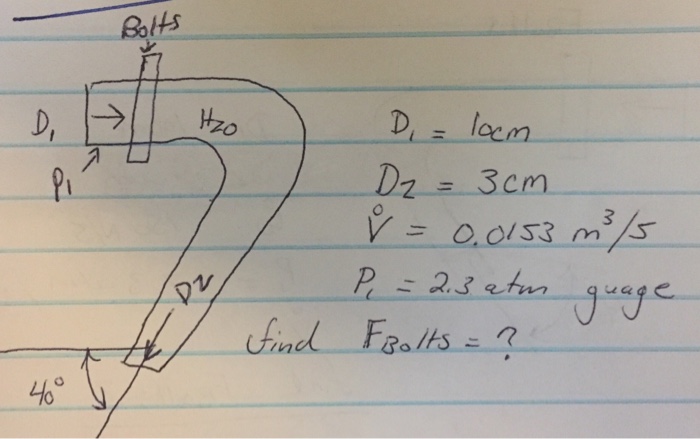 Bolts
D₁
P₁
H₂O
D2
40°
D₁ = 10cm
D2 = 3cm
V̊ = 0.0153 m³/s
P₁ = 2.3 atm guage
find FBolts = ?